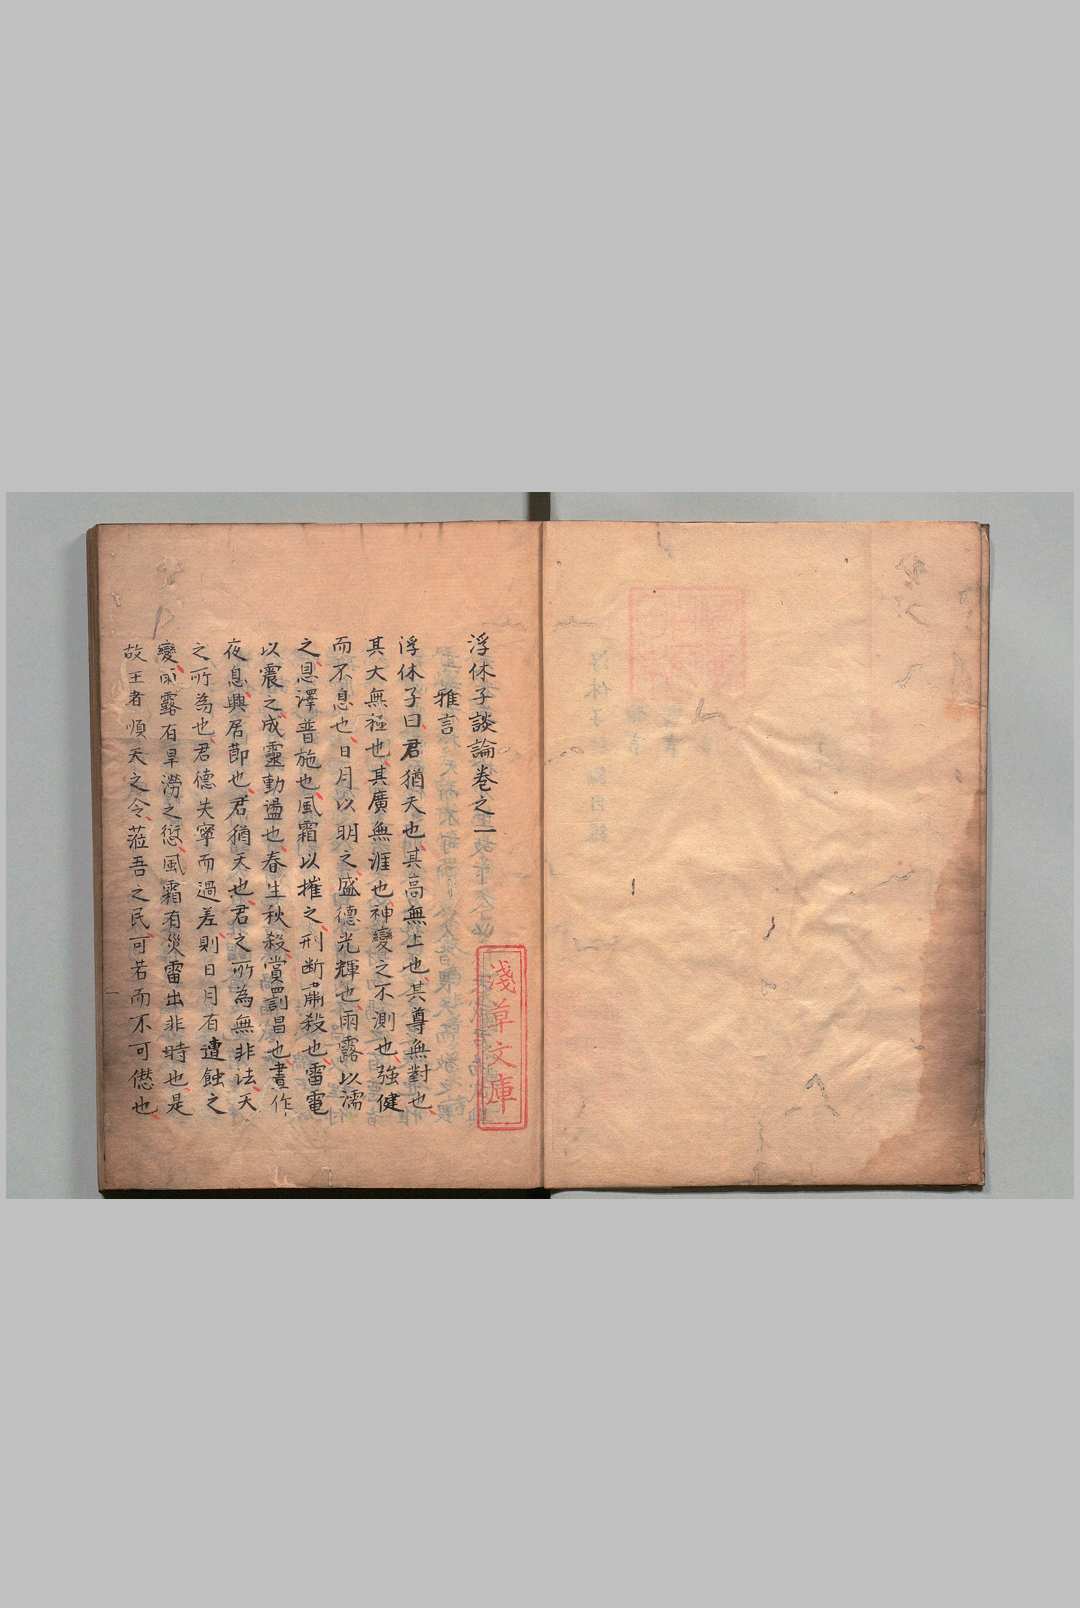 浮休子談論卷之一
雅言
浮休子曰君猶天也其高無上也其尊無對也
其大無極也其廣無涯也神變之不測也強健
而不息也日月以明之盛德光輝也雨露以濡
之恩澤普施也風霜以摧之刑斷肅殺也雷電
以震之威靈動盪也春生秋殺賞罰昌也晝作
夜息興居節也君猶天也君之所為無非法天
之所為也君德失寧而過差則日月有遭蝕之
變雨露有旱澇之愆風霜有災雷出非時也是
故王者順天之令蒞吾之民可若而不可僁也
淺草文庫